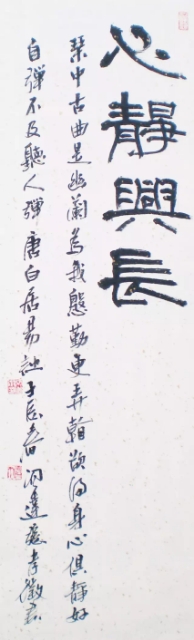 心靜興長
琴中古曲是幽蘭為我慇勤更弄欲得身心俱靜好
自彈不及聽人彈唐白居易